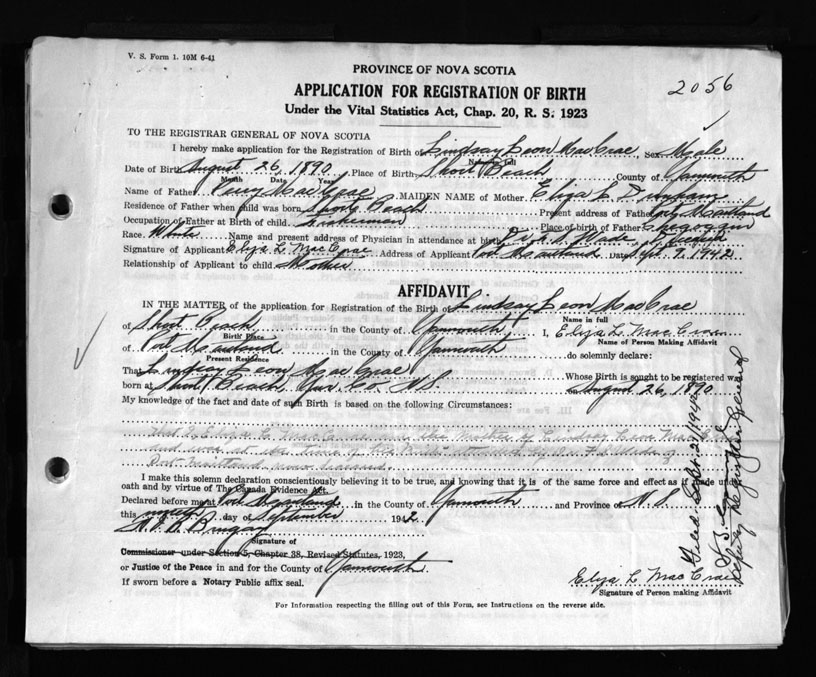 V. S. Form 1. 10M 6-41
PROVINCE OF NOVA SCOTIA
2056
APPLICATION FOR REGISTRATION OF BIRTH
Under the Vital Statistics Act, Chap. 20, R. S. 1923
TO THE REGISTRAR GENERAL OF NOVA SCOTIA
I hereby make application for the Registration of Birth of Lindsay Leon MacCrae, Sex Male
Name in full
Date of Birth August 26, 1890 Place of Birth, Short Beach County of Yarmouth
Month Date Year
Name of Father Percy MacCrae MAIDEN NAME of Mother Eliza L.
Residence of Father when child was born Short Beach Present address of Father Maitland
Occupation of Father at Birth of child Place of birth of Father
Race. White Name and present address of Physician in attendance at birth
Signature of Applicant Eliza L MacCrae Address of Applicant Port Maitland Date Sept. 9, 1942
Relationship of Applicant to child Mother
AFFIDAVIT
IN THE MATTER of the application for Registration of the Birth of Lindsay Leon MacCrae
Name in full
of Short Beach in the County of Yarmouth I, Eliza L. MacCrae
Birth Place Name of Person Making Affidavit
of Port Maitland in the County of Yarmouth do solemnly declare:
Present Residence
That Lindsay Leon MacCrae Whose Birth is sought to be registered was
born at Short Beach, Yar. Co. N.S. on August 26, 1890
My knowledge of the fact and date of such Birth is based on the following Circumstances:
that I, Eliza L. MacCrae, the Mother of Lindsay Leon MacCrae
and was at the time of his birth attended by Dr.
Port Maitland now deceased
I make this solemn declaration conscientiously believing it to be true, and knowing that it is of the same force and effect as if made under
oath and by virtue of The Canada Evidence Act.
Declared before me at Port Maitland in the County of Yarmouth and Province of N.S.
this ninth day of September 1942
Signature of
Commissioner under Section 5, Chapter 38, Revised Statutes, 1923,
or Justice of the Peace in and for the County of Yarmouth.
If sworn before a Notary Public affix seal.
Eliza L MacCrae
Signature of Person making Affidavit
For Information respecting the filling out of this Form, see Instructions on the reverse side.
Filed 1942
Deputy Registrar General